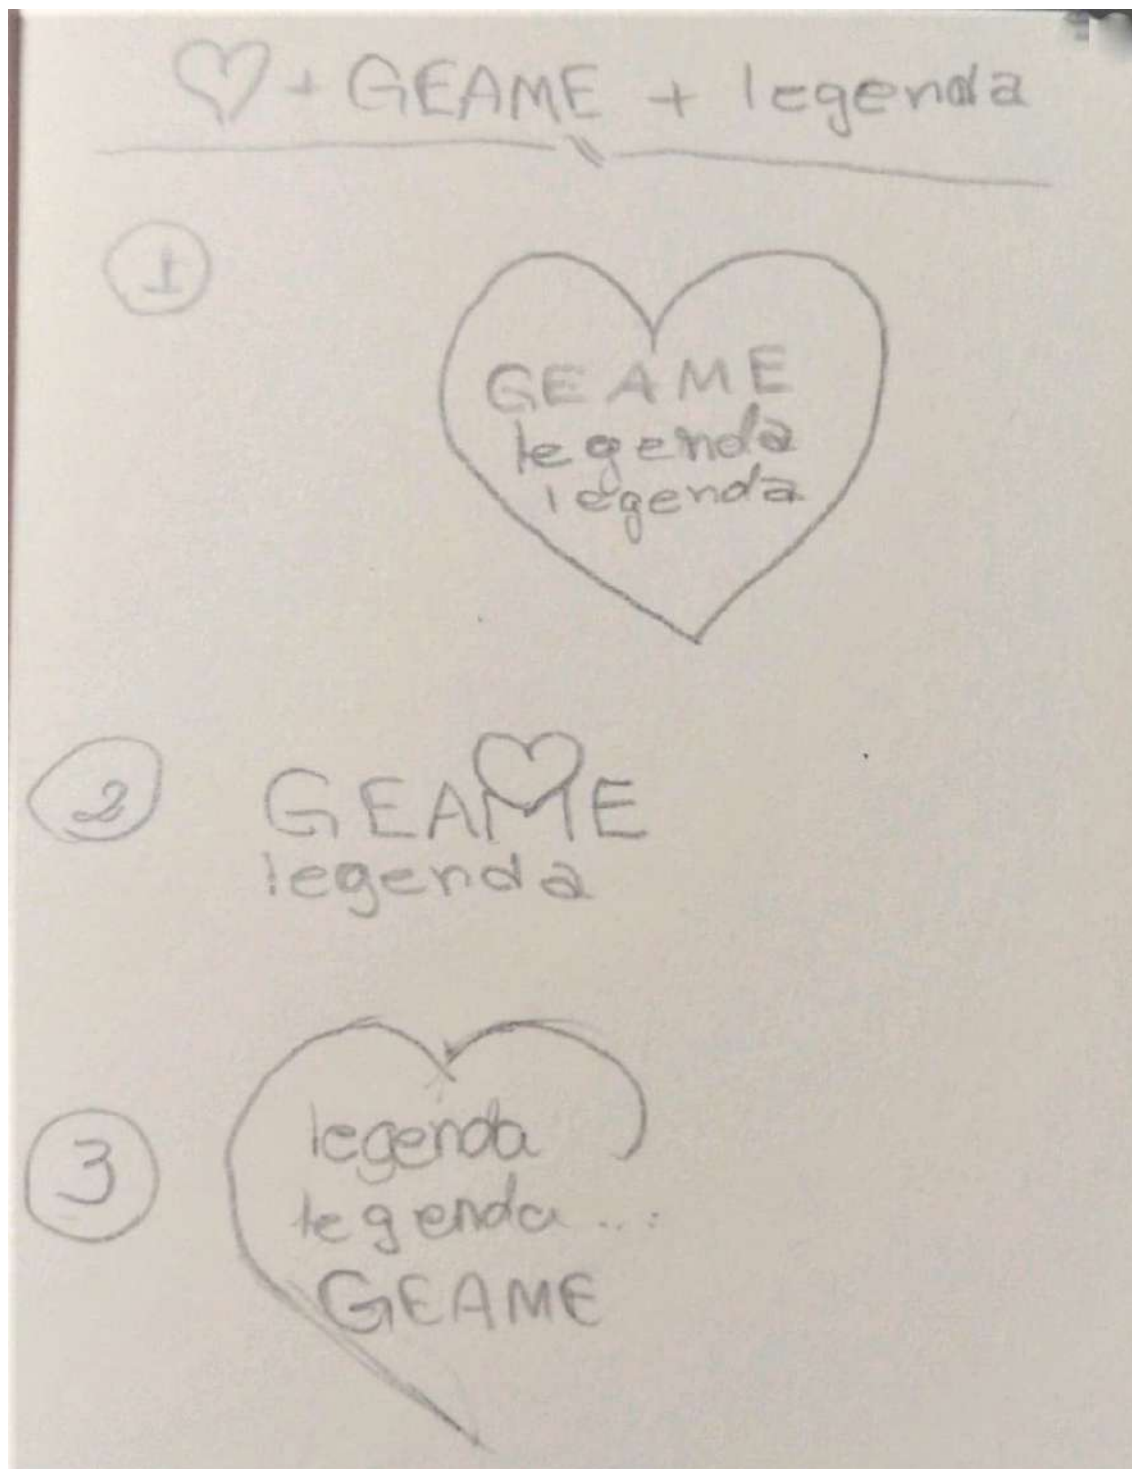 ♡ + GEAME + legenda
1
GEAME
legenda
legenda
2
GEAME
legenda
3
legenda
legenda...
GEAME